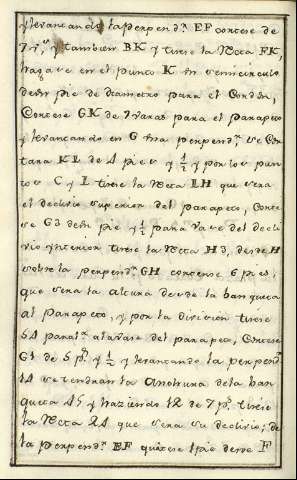 y levantando la perpend.ª EF contese de
y tambien BK y tirese la Recta FK,
hagase en el punto K un semicirculo
de un pie de diametro para el Cordon,
Contese GK de 7 varas para el parapeto
y levantando en G una perpend.ᵉ se Con
tara KL de 4 pies y ½ y por los pun
tos C y I tirese la Recta IH que sera
el declivio superior del parapeto, Conte
se G3 de un pie y ½ para vase del decli
vio ynterior tirese la Recta H3, desde H
sobre la perpend.ᵉ GH contense 6 pies,
que sera la altura desde la banqueta
al Parapeto, y por la division tirese
54 paral.ª a la vase del parapeto, Contese
de 5 p.ˢ y ½ y levantando la perpen.ᵉ
14 se tendran la Anchura de la ban
queta 45 y haziendo 12 de 7 p.ˢ tirese
la Recta 24 que sera su declivio; de
la perpend.ᵉ EF quitese 1 pie desde F